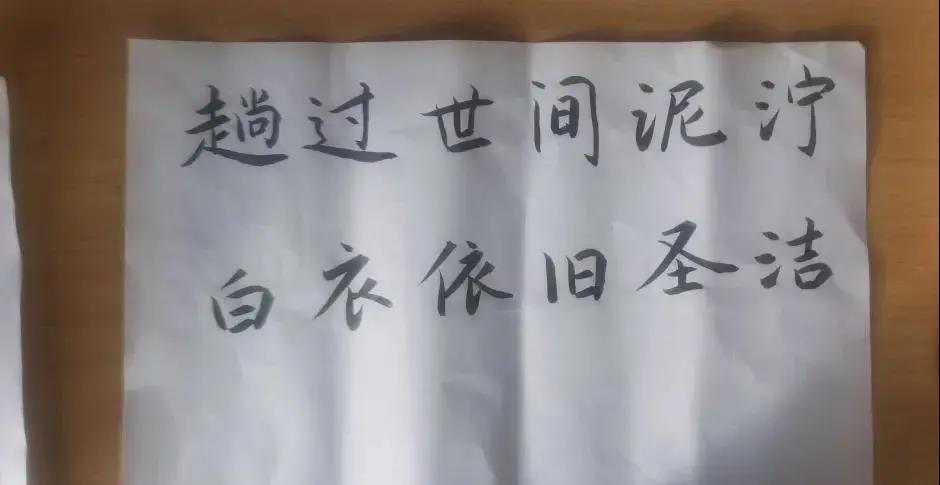 趟过世间泥泞
白衣依旧圣洁